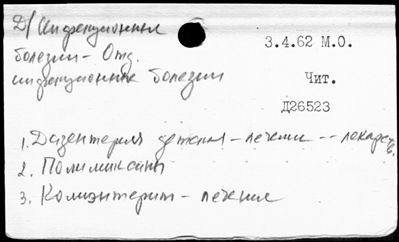 Д/ Инфекционныя
болезни - Отд.
инфекционные болезни
3.4.62 М.О.
Чит.
Д26523
1. Дизентерия детская - лечение -- лекарств.
2. Полимиксины
3. Колиэнтерит - лечение